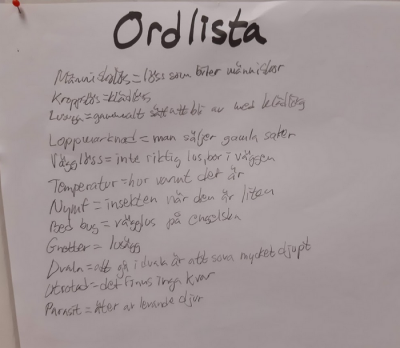 Ordlista
Människolös = löss som biter människor
Kropplös = klädlös
= gammalt sätt att bli av med klädlös
Loppmarknad = man säljer gamla saker
Vägglöss = inte riktig lus, bor i väggen
Temperatur = hur varmt det är
Nymf = insekten när den är liten
Bed bug = vägglus på engelska
Gnetter = lusägg
Dvala = att gå i dvala är att sova mycket djupt
Utrotad = det finns inga kvar
Parasit = äter av levande djur